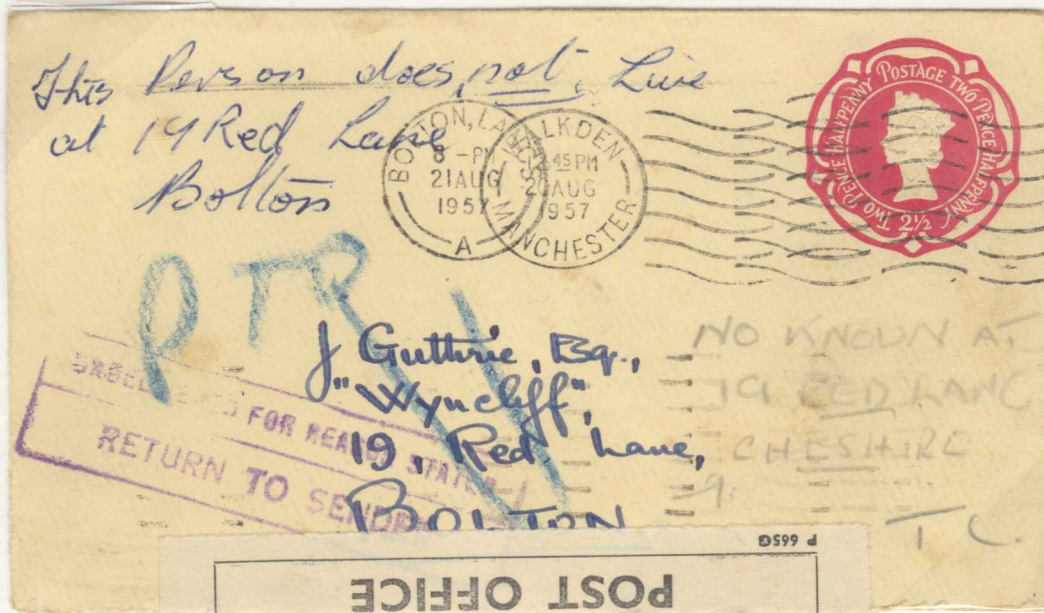 This Person does, not, Live
at 19 Red Lane
Bolton
BOLTON, LANCS
8 - PM
21 AUG
1957
A
WALKDEN
45 PM
20 AUG
1957
MANCHESTER
POSTAGE TWO PENCE HALFPENNY
TWO PENCE HALFPENNY
2½
PTR
J Guthrie, Esq.,
"Wyncliff",
19, Red Lane,
BOLTON
NO KNOWN AT
19 RED LANE
CHESHIRE
T C.
FOR REASON STATED
RETURN TO SENDER
P 665G
POST OFFICE